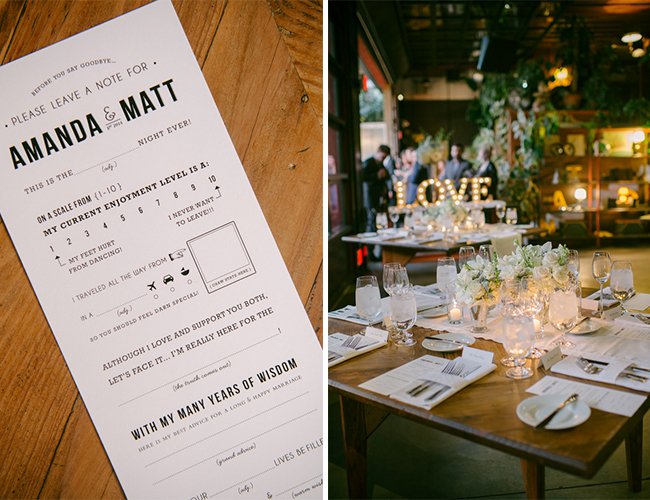 BEFORE YOU SAY GOODBYE...
• PLEASE LEAVE A NOTE FOR •
AMANDA & MATT
THIS IS THE ____________ NIGHT EVER!
(adj.)
ON A SCALE FROM {1-10}
MY CURRENT ENJOYMENT LEVEL IS A:
1 2 3 4 5 6 7 8 9 10
MY FEET HURT
FROM DANCING!
I NEVER WANT
TO LEAVE!!!
I TRAVELED ALL THE WAY FROM
IN A ____________
(adj.)
SO YOU SHOULD FEEL DARN SPECIAL!
{ DRAW STATE HERE }
ALTHOUGH I LOVE AND SUPPORT YOU BOTH,
LET'S FACE IT... I'M REALLY HERE FOR THE
____________!
(the truth comes out)
WITH MY MANY YEARS OF WISDOM
HERE IS MY BEST ADVICE FOR A LONG & HAPPY MARRIAGE
(grand advice)
LIVES BE FILLE
(adj.)
(warm wish
LOVE